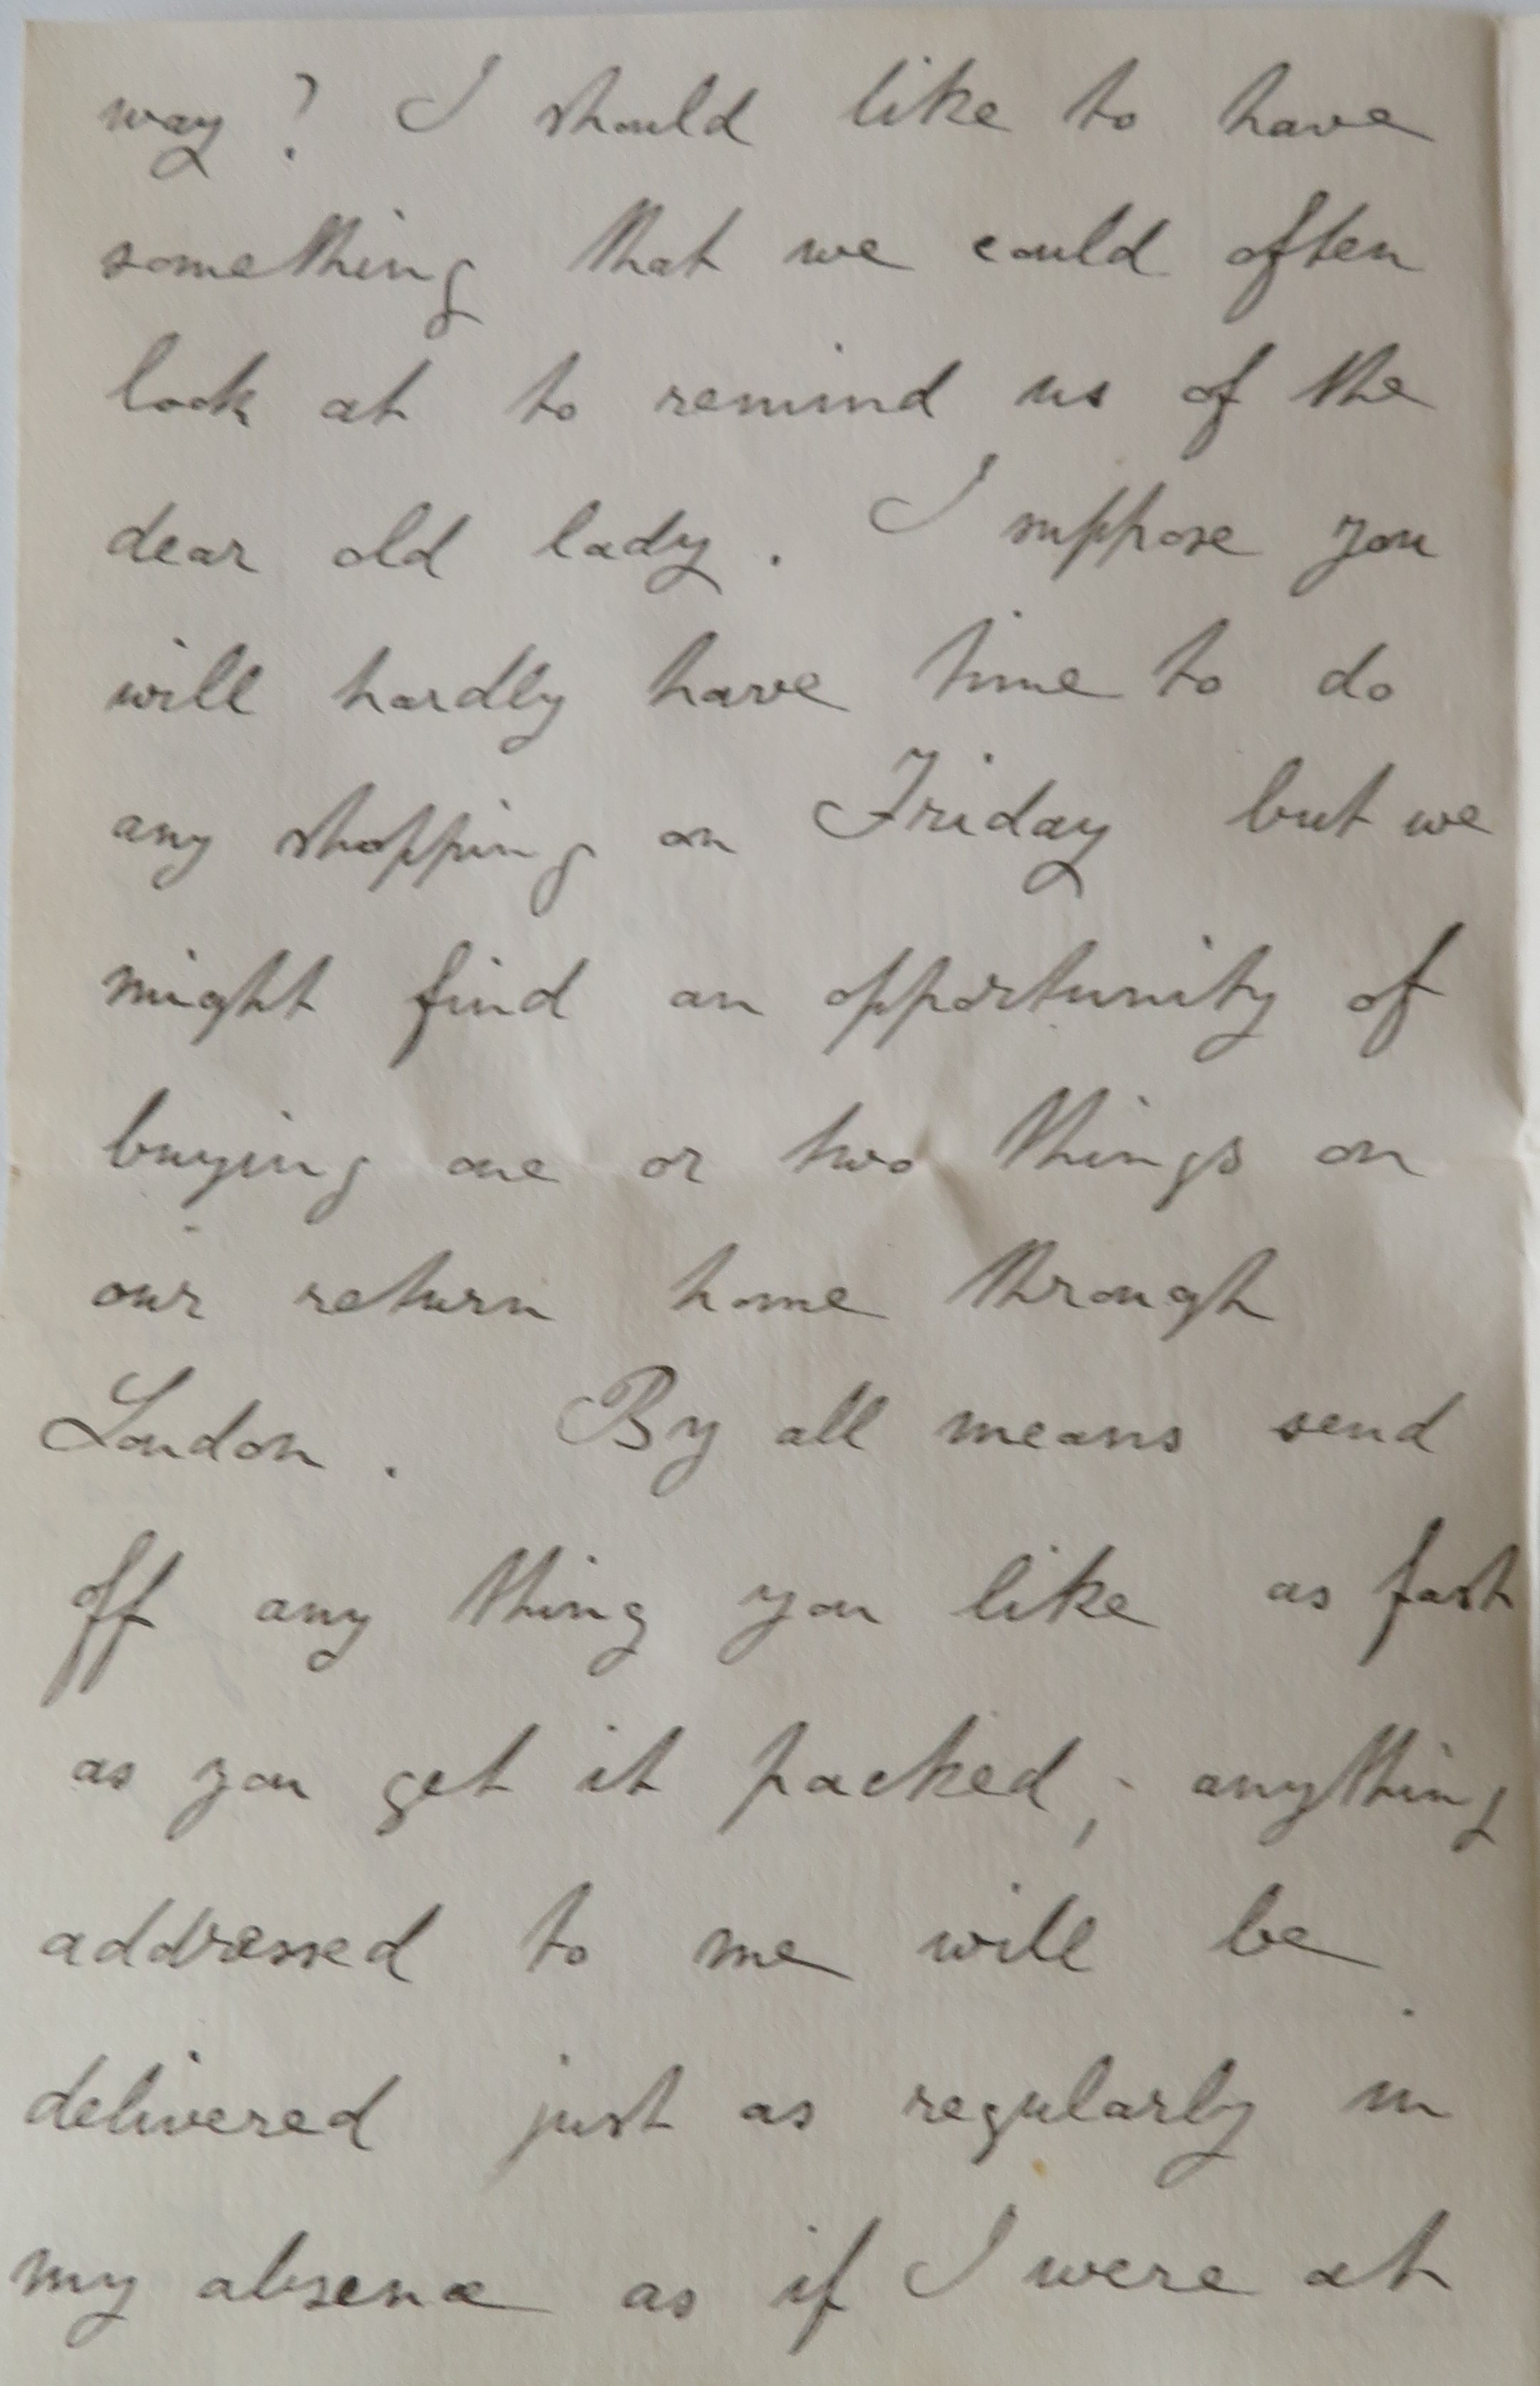 way? I should like to have
something that we could often
look at to remind us of the
dear old lady. I suppose you
will hardly have time to do
any shopping on Friday but we
might find an opportunity of
buying one or two things on
our return home through
London. By all means send
off any thing you like as fast
as you get it packed; anything
addressed to me will be
delivered just as regularly in
my absence as if I were at